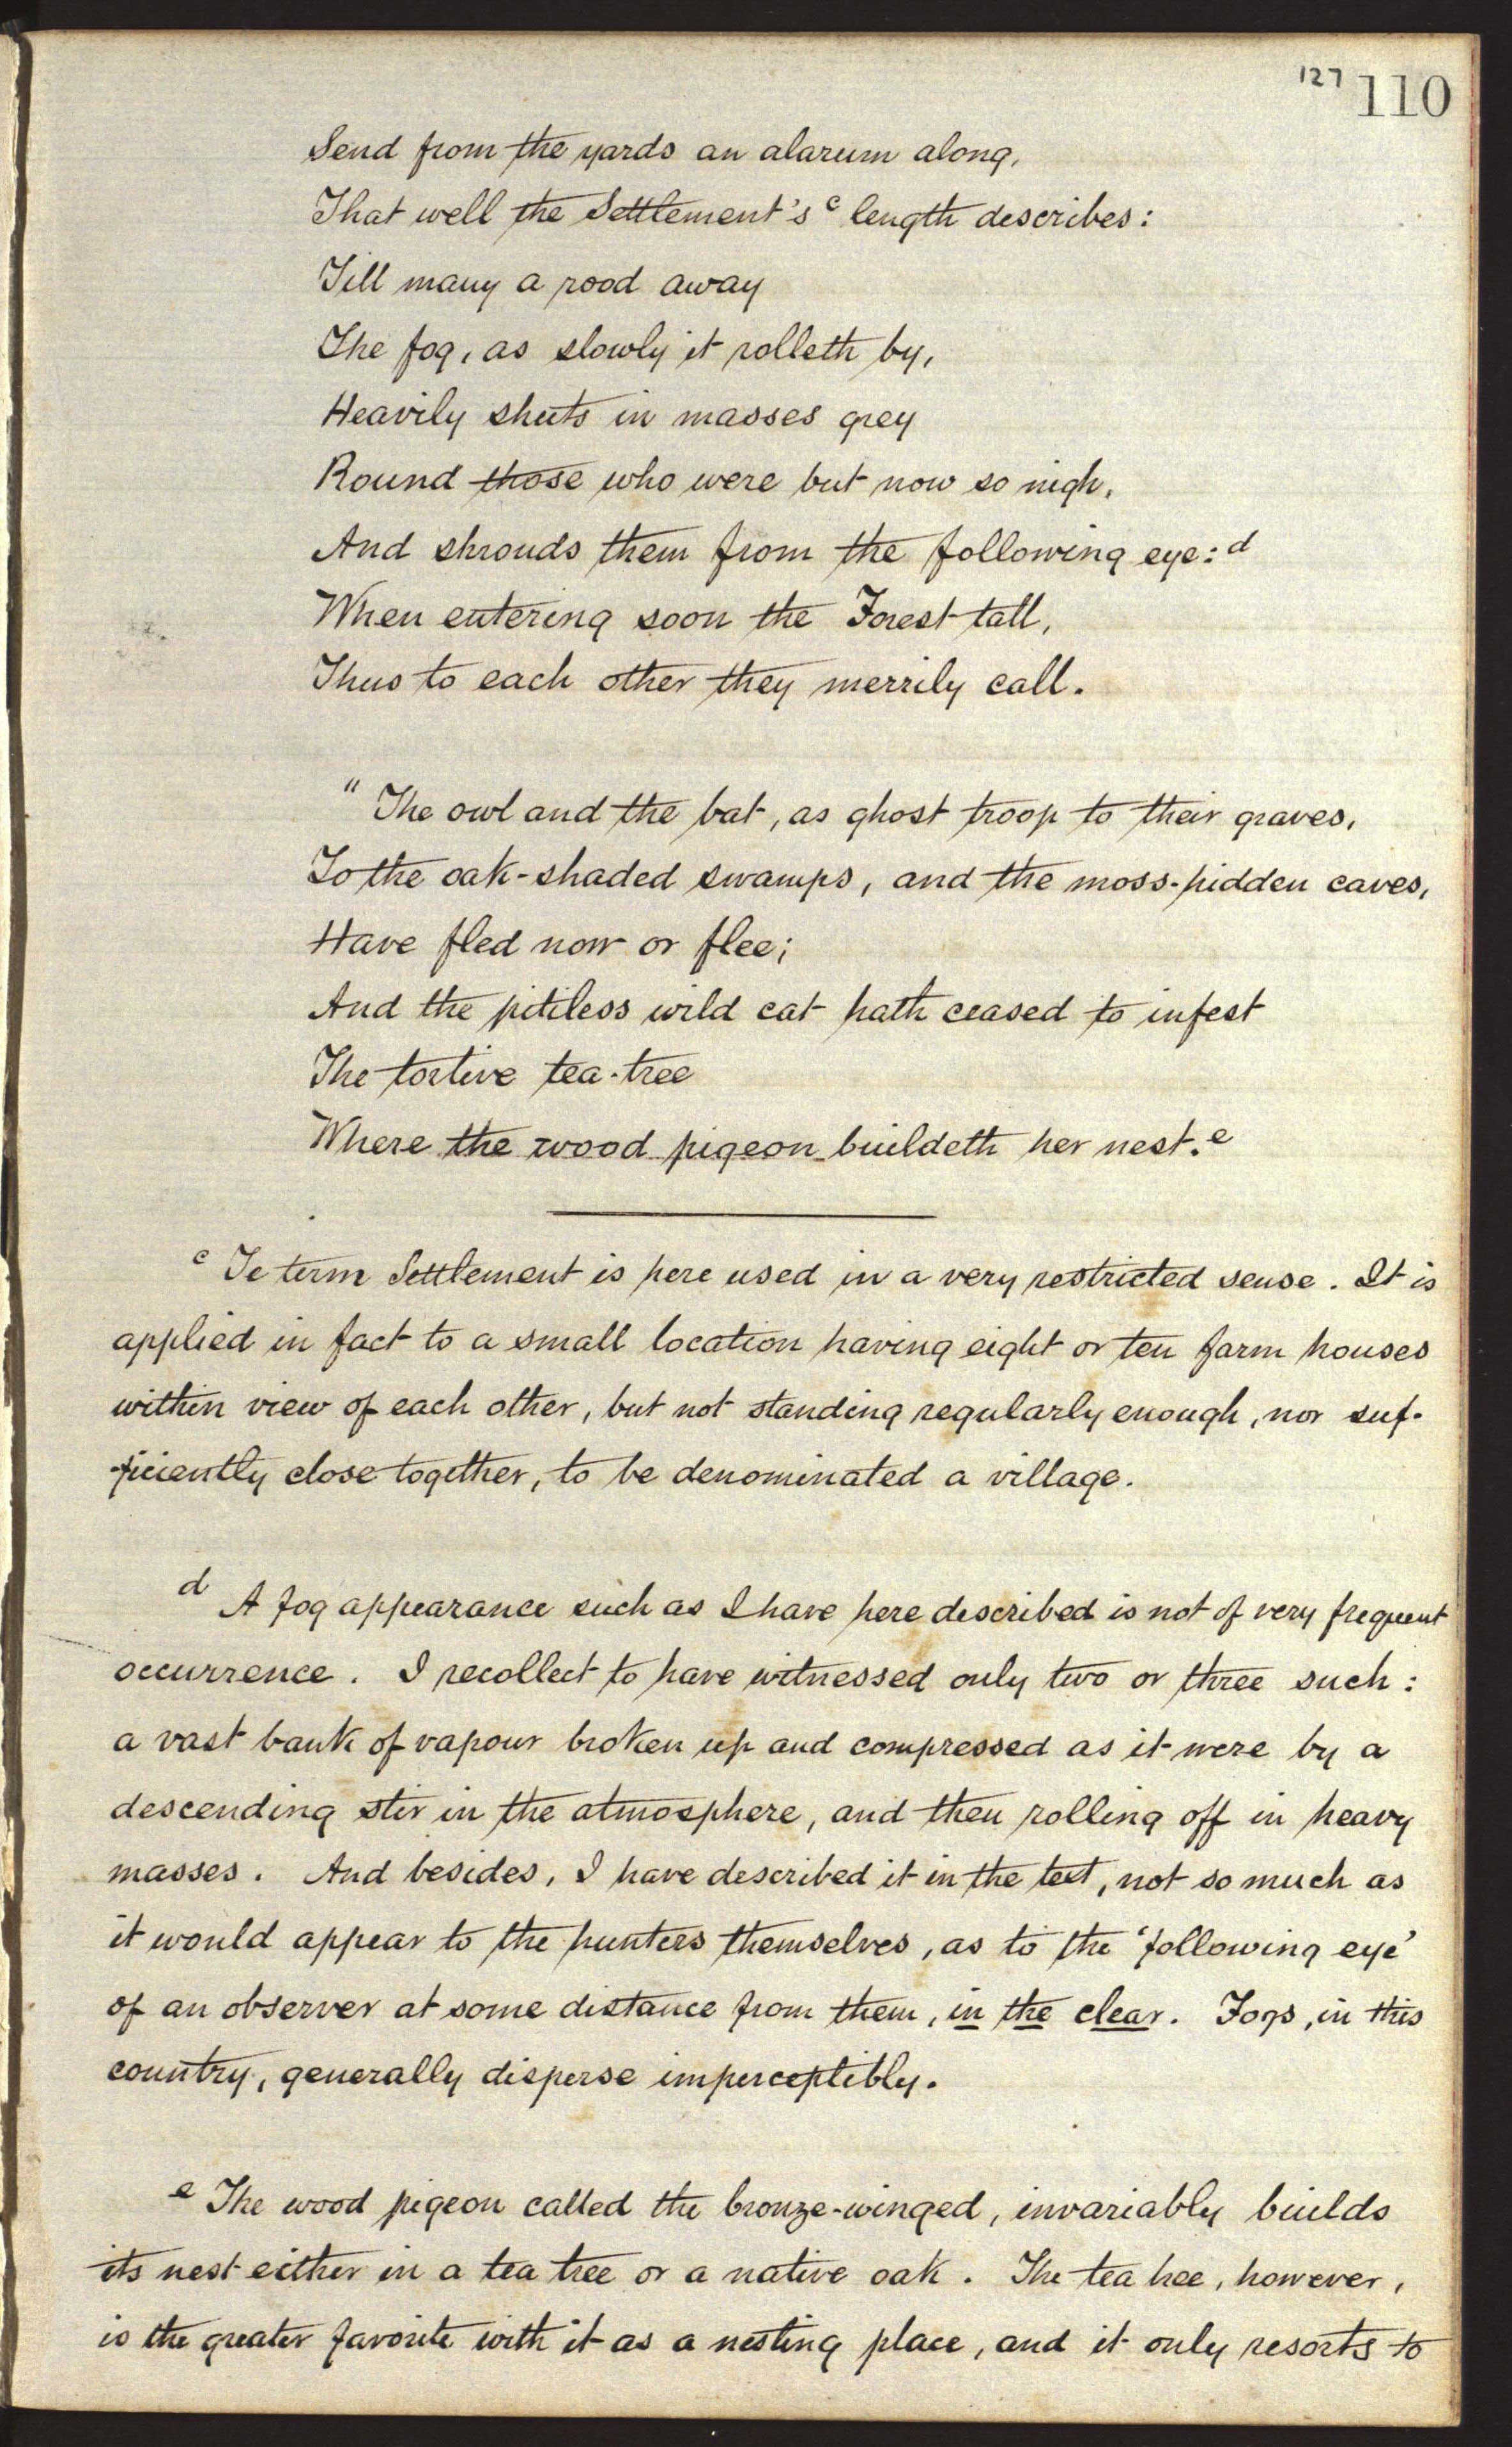 127 110
Send from the yards an alarum along,
That well the Settlement's c length describes:
Till many a rood away
The fog, as slowly it rolleth by,
Heavily shuts in masses grey
Round those who were but now so nigh,
And shrouds them from the following eye: d
When entering soon the Forest tall,
Thus to each other they merrily call.
" The owl and the bat, as ghost troop to their graves,
To the oak-shaded swamps, and the moss-hidden caves,
Have fled now or flee;
And the pitiless wild cat hath ceased to infest
The tortive tea-tree
Where the wood pigeon buildeth her nest. e
c Te term Settlement is here used in a very restricted sense. It is
applied in fact to a small location having eight or ten farm houses
within view of each other, but not standing regularly enough, nor suf-
-ficiently close together, to be denominated a village.
d A fog appearance such as I have here described is not of very frequent
occurrence. I recollect to have witnessed only two or three such:
a vast bank of vapour broken up and compressed as it were by a
descending stir in the atmosphere, and then rolling off in heavy
masses. And besides, I have described it in the text, not so much as
it would appear to the hunters themselves, as to the 'following eye'
of an observer at some distance from them, in the clear. Fogs, in this
country, generally disperse imperceptibly.
e The wood pigeon called the bronze-winged, invariably builds
its nest either in a tea tree or a native oak. The tea tree, however,
is the greater favorite with it as a nesting place, and it only resorts to